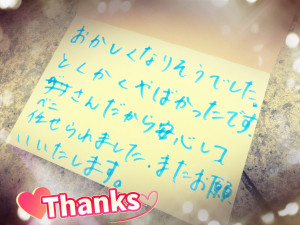 おかしくなりそうでした。
とくかくやばかったです
さんだから安心して
ベニ
任せられました。またお願
いいたします。
Thanks